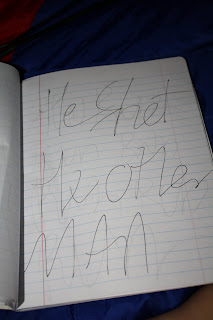 He Shot
the other
MAN